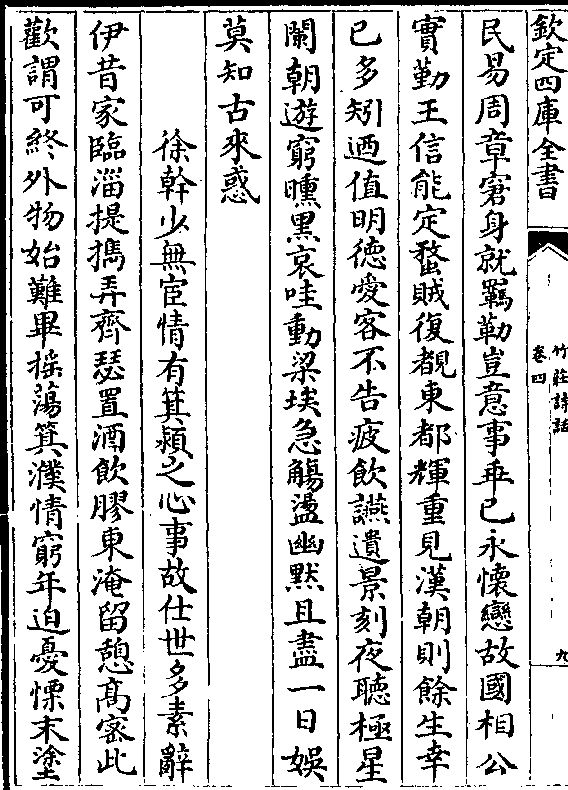 欽定四庫全書
竹莊詩話
卷四
九
民易周章窘身就羈勒豈意事乖已永懷戀故國相公
實勤王信能定蝥賊復覩東都輝重見漢朝則餘生幸
已多矧廼值明德愛客不告疲飲讌遺景刻夜聽極星
闌朝遊窮曛黑哀哇動梁埃急觴盪幽默且盡一日娛
莫知古來惑
徐幹少無宦情有箕潁之心事故仕世多素辭
伊昔家臨淄提擕弄齊瑟置酒飲膠東淹留憩髙密此
歡謂可終外物始難畢揺蕩箕濮情窮年迫憂慄末塗